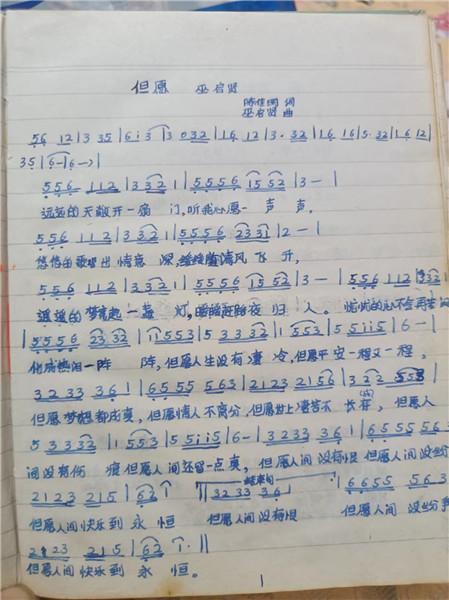 但愿 巫启贤
陈佳明 词
巫启贤 曲
56 12 | 3 35 | 6 i 3 | 3 032 | 16 12 | 3 · 32 | 16 16 | 5 · 32 | 16 12 |
35 | 6 - | 6 - |
5 5 6 112 | 3 3 2 1 | 5 5 5 6 15 52 | 3 - |
远远的天敞开一扇 门,听我心愿一 声 声,
5 5 6 112 | 3 3 2 1 | 5 5 5 6 23 31 | 2 - |
悠悠的歌唱出情意 深, 随清风 飞 升,
5 5 6 112 | 3 3 2 1 | 5 5 5 6 15 52 | 3 - | 5 5 6 112
遥遥的梦亮起一盏 灯, 夜 归 人。 忧忧的心不会再
5 5 5 6 23 32 | 11 553 | 5 33 32 | 1 553 | 5 5 i i 5 | 6 - |
化成热泪一阵 阵,但愿人生没有凄 冷,但愿平安一程又一程,
3 2 33 36 1 | 6 5 55 563 | 2123 2156 | 3 2 2
但愿梦想都成真,但愿情人不离分,但愿世上凄苦不 长存, 但愿人
5 33 32 | 1 553 | 5 5 i i 5 | 6 - | 3 2 33 36 1 | 6 5 55 56
间没有伤 痕 但愿人间还留一点真, 但愿人间没有恨 但愿人间没纷
2123 215 | 62 i | 结束句 3 2 33 36 1 | 66 55 56 3
但愿人间快乐到 永 恒 但愿人间没有恨 但愿人间 没纷争
2123 215 | 62 i · ||
但愿人间快乐到 永 恒。
1